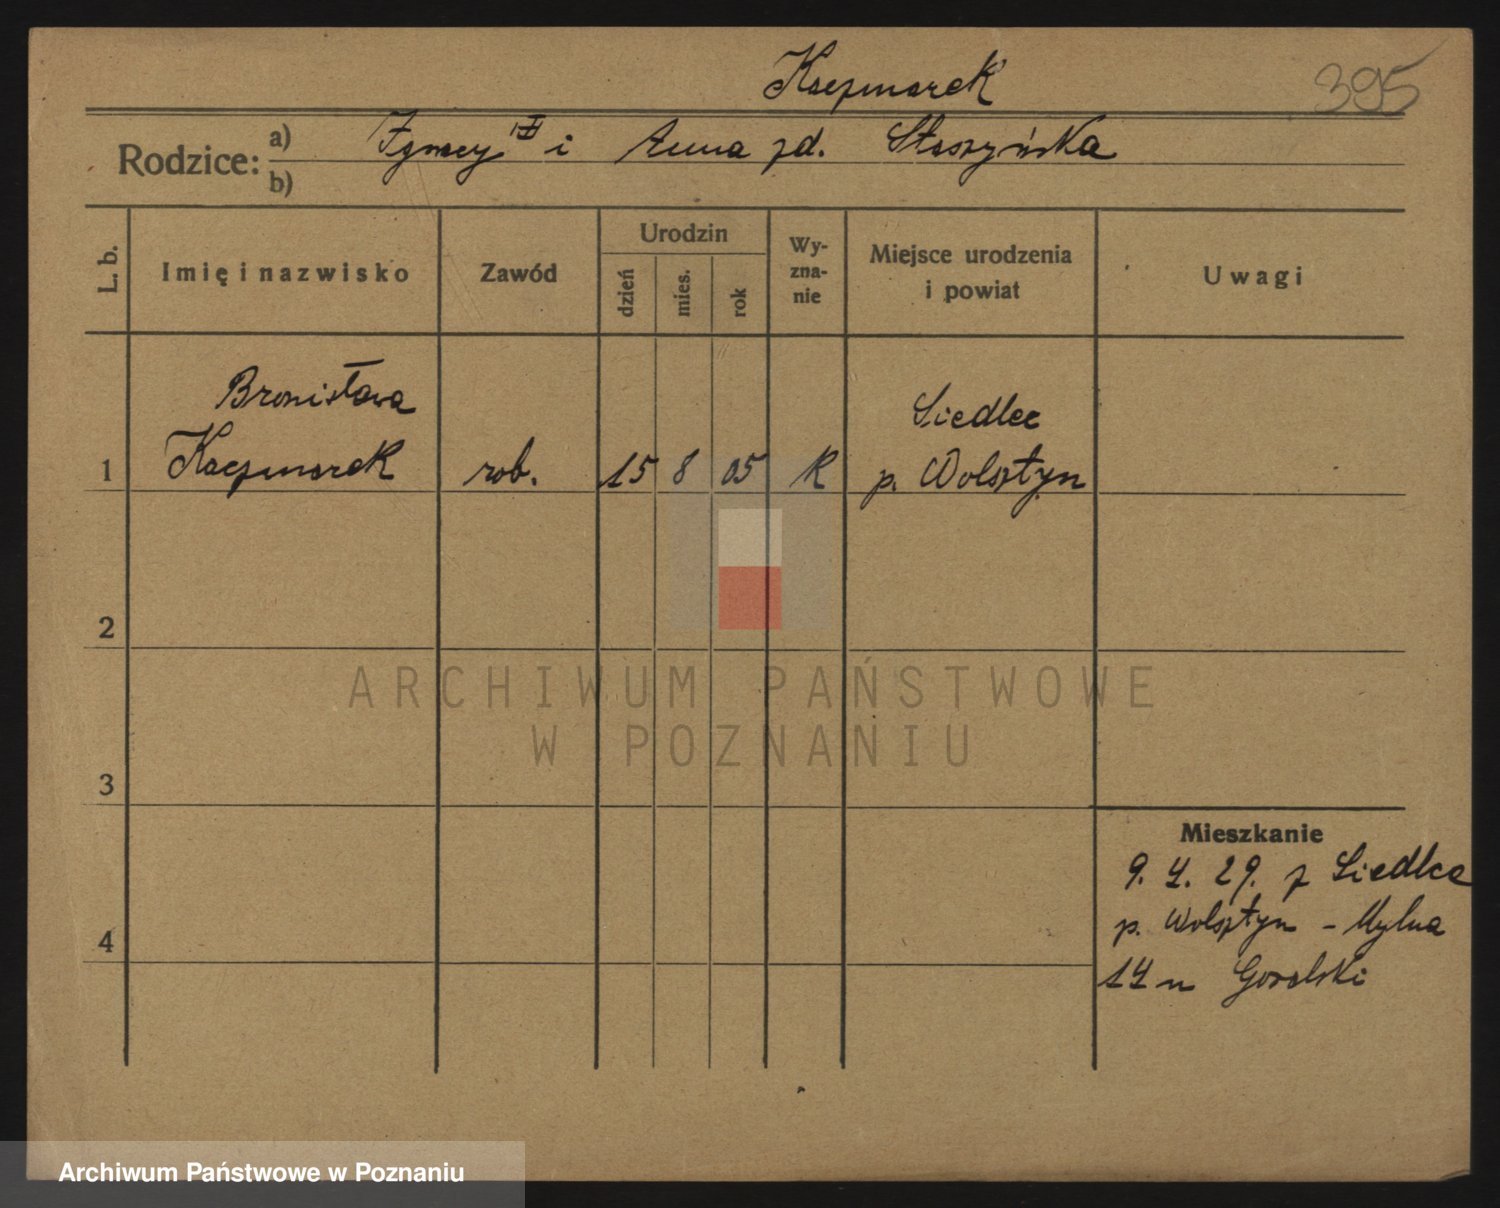 Kaczmarek
395
Rodzice: a) b)
Ignacy i Anna zd. Staszyńska
L. b.
Imię i nazwisko
Zawód
Urodzin
dzień
mies.
rok
Wy-
zna-
nie
Miejsce urodzenia
i powiat
Uwagi
1
Bronisława
Kaczmarek
rob.
15 8 05
R
Siedlec
p. Wolsztyn
2
3
4
ARCHIWUM PAŃSTWOWE
W POZNANIU
Mieszkanie
9. 4. 29. z Siedlca
p. Wolsztyn - Mylna
14 u Goralski
Archiwum Państwowe w Poznaniu